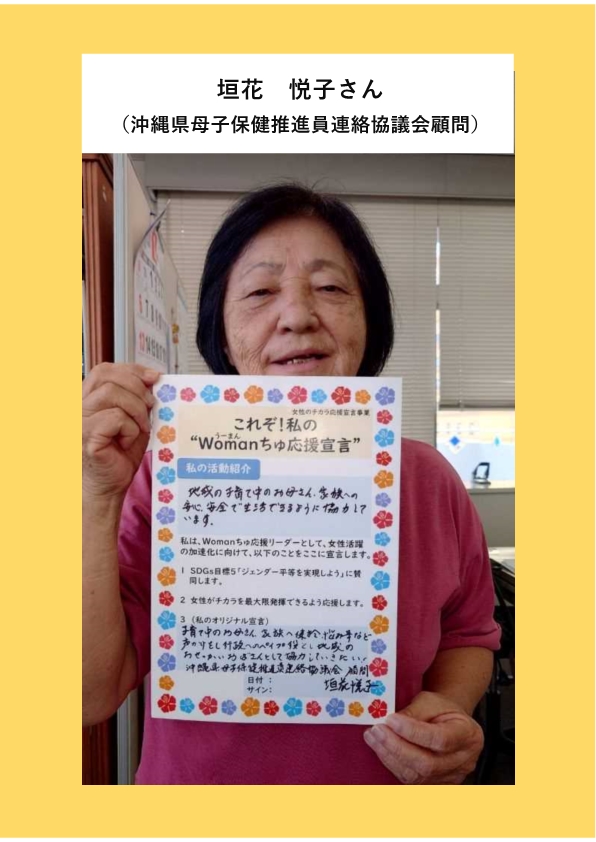 垣花　悦子さん
（沖縄県母子保健推進員連絡協議会顧問）
女性のチカラ応援宣言事業
これぞ！私の
うーまん
“Womanちゅ応援宣言”
私の活動紹介
地域の子育て中のお母さん、家族への
安心、安全で生活できるように協力して
います。
私は、Womanちゅ応援リーダーとして、女性活躍
の加速化に向けて、以下のことをここに宣言します。
1　SDGs目標5「ジェンダー平等を実現しよう」に賛
同します。
2　女性がチカラを最大限発揮できるよう応援します。
3　（私のオリジナル宣言）
子育て中のお母さん、家族へ
声かけをし行政へのパイプ役とし地域の
おせっかいおばさんとして協力していきたい。
沖縄県母子保健推進員連絡協議会　顧問
日付：
サイン：　垣花悦子